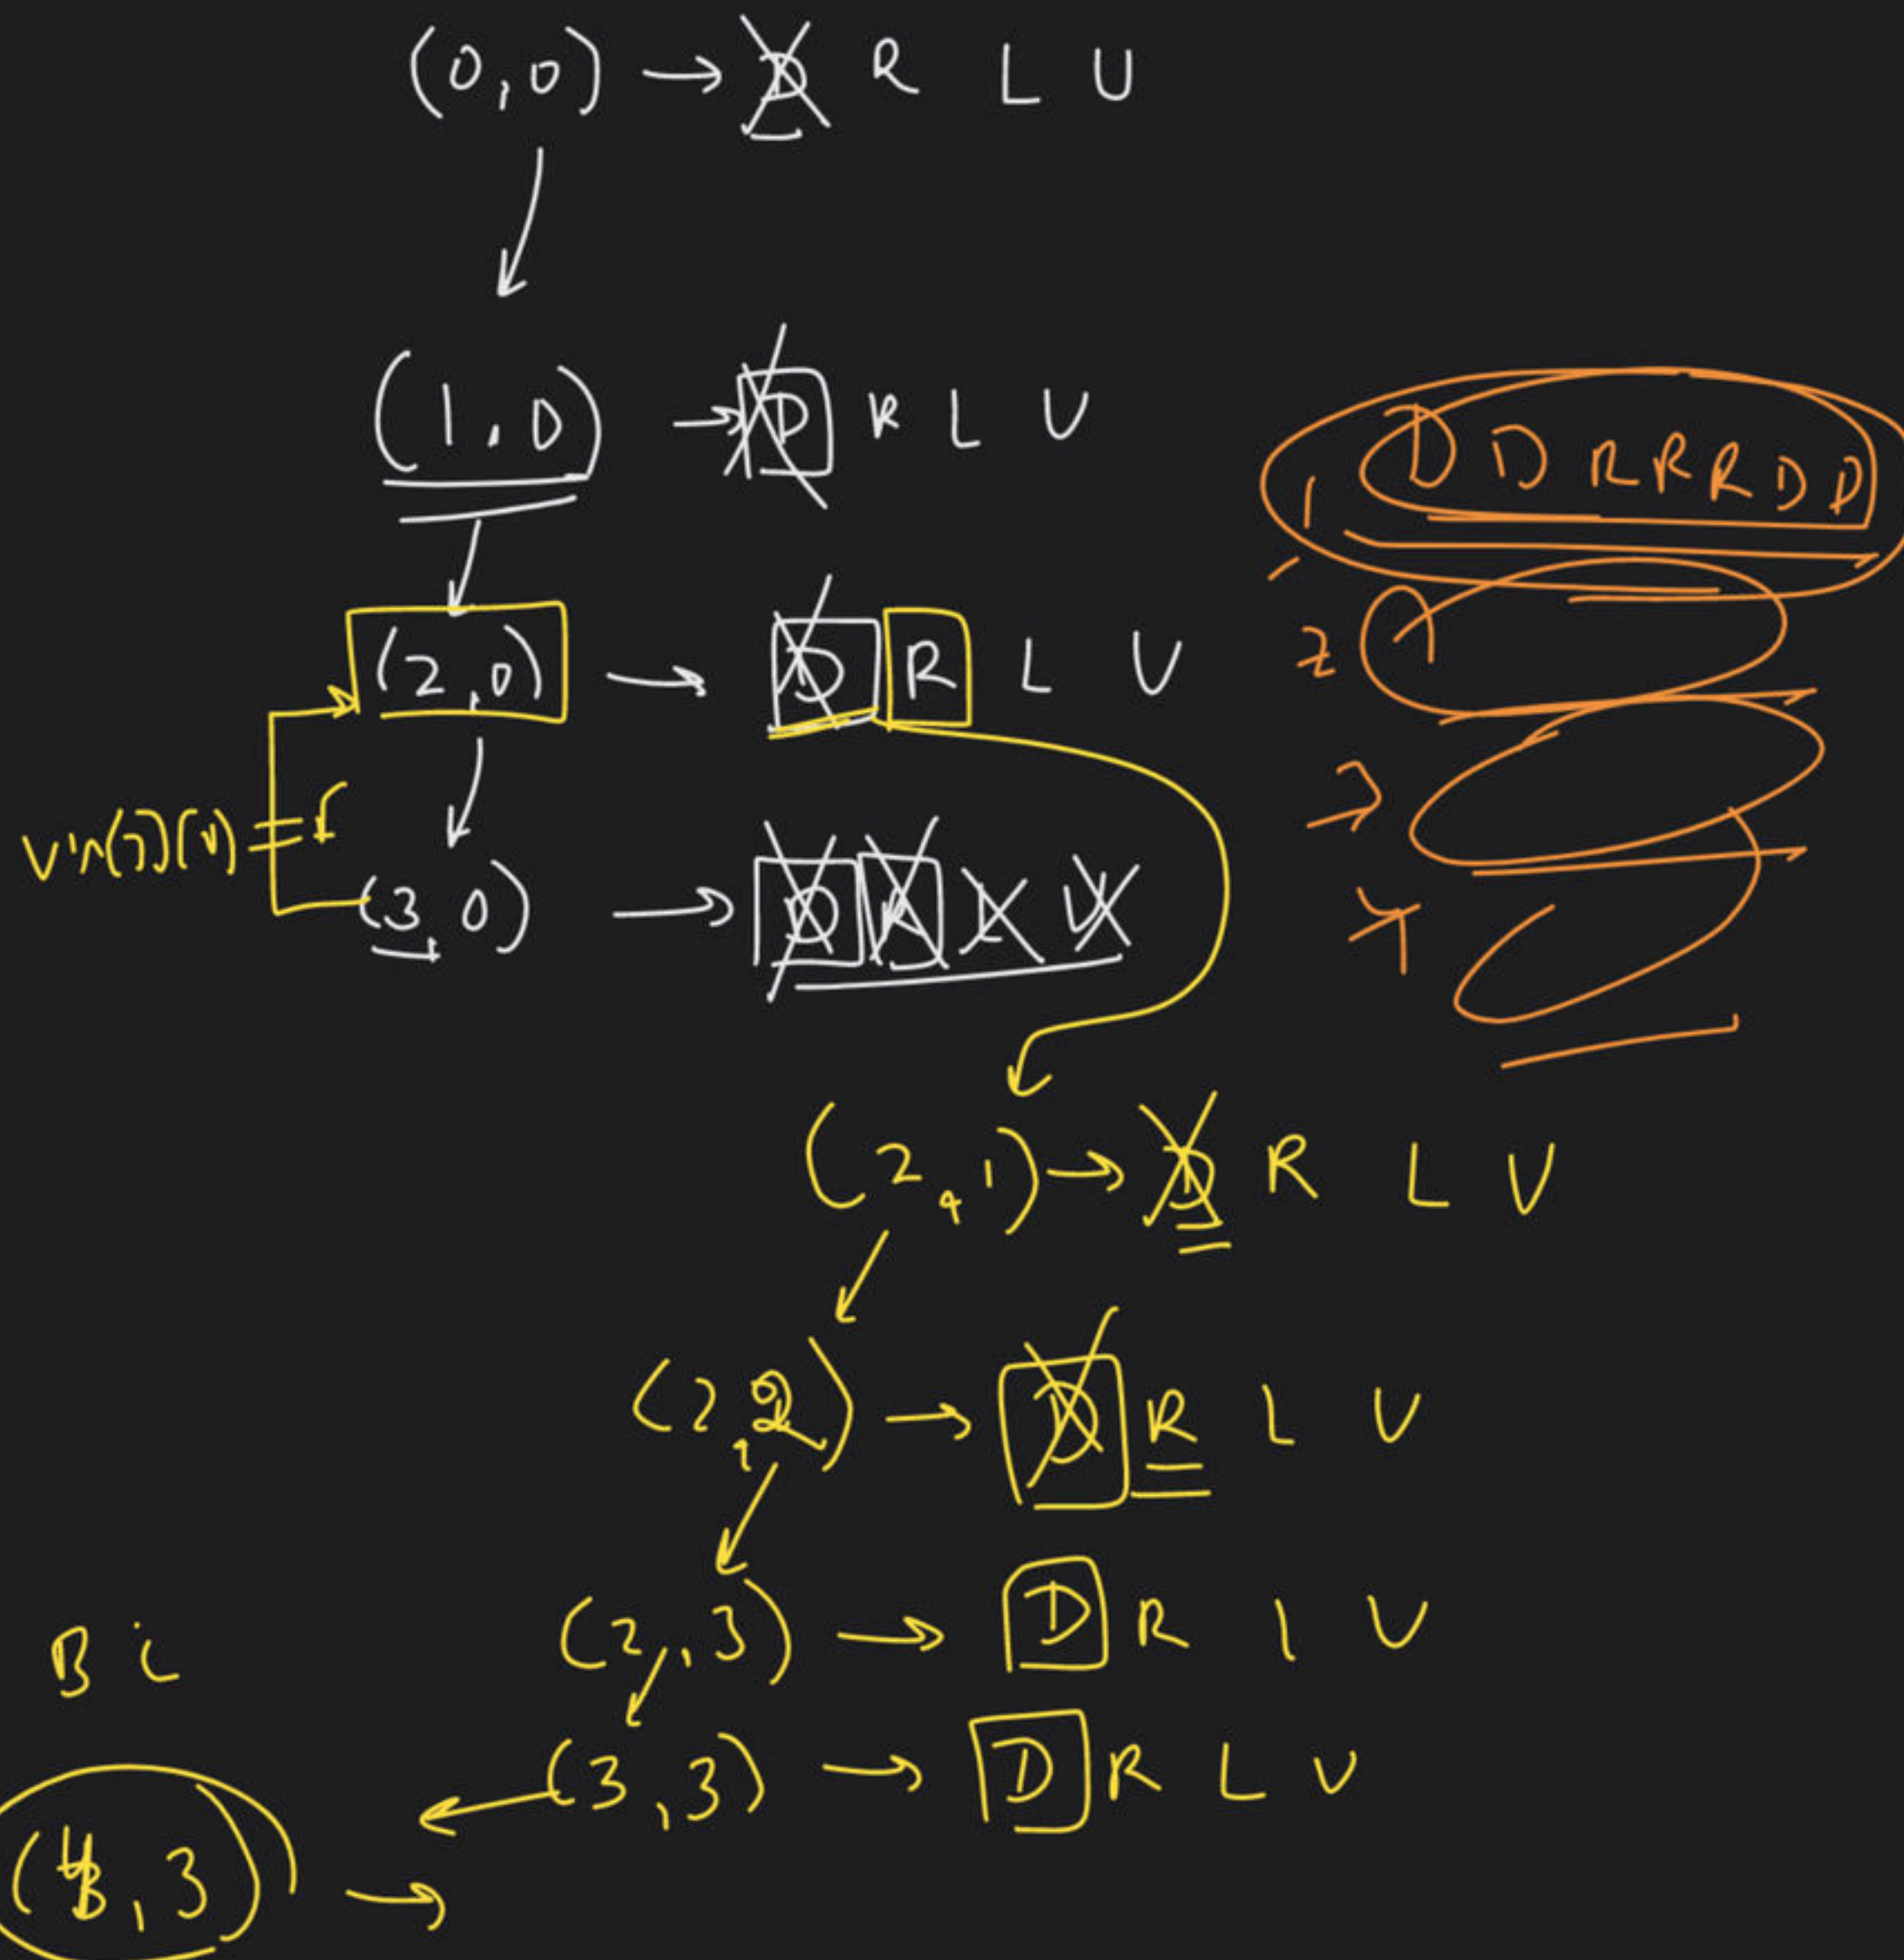 (0,0) → D R L U
(1,0) → D R L U
1 D D R R R D D
(2,0) → D R L U
2
3
vis[3][0] = f
(3,0) → D R L U
4
(2,1) → D R L U
(2,2) → D R L U
(2,3) → D R L U
B C
(3,3) → D R L U
(4,3) →